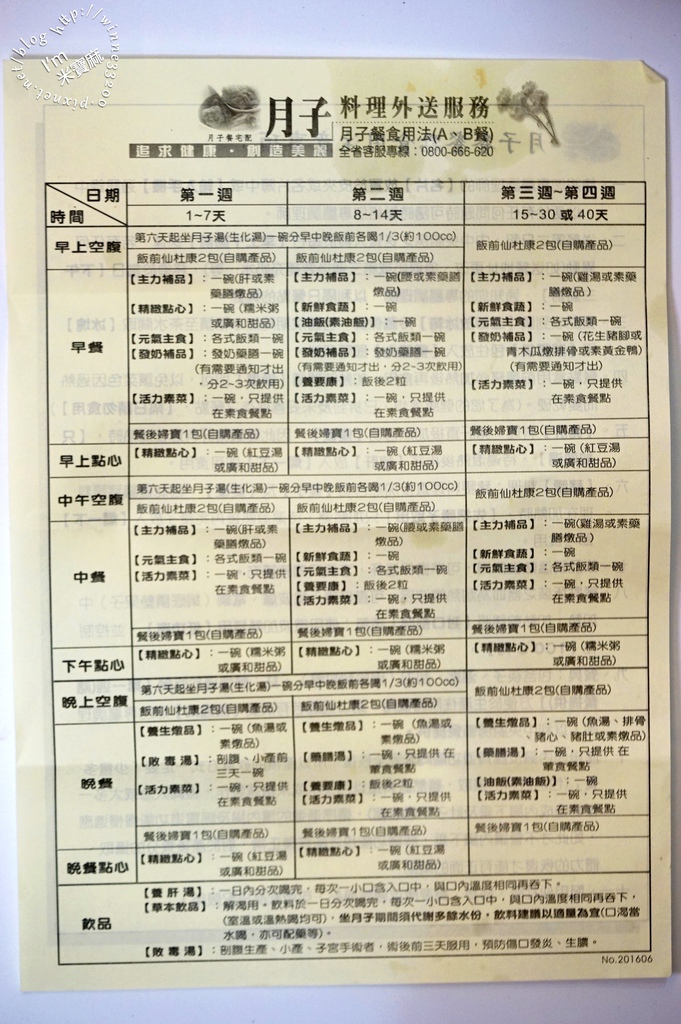 http://winne3200.pixnet.net/blog
I'm
米寶麻
月子餐宅配
月子 料理外送服務
月子餐食用法(A、B餐)
追求健康・創造美麗
全省客服專線：0800-666-620
日期 第一週 第二週 第三週~第四週
時間 1~7天 8~14天 15~30 或 40天
早上空腹
第六天起坐月子湯(生化湯)一碗分早中晚飯前各喝1/3(約100cc)
飯前仙杜康2包(自購產品) 飯前仙杜康2包(自購產品) 飯前仙杜康2包(自購產品)
早餐
【主力補品】：一碗(肝或素藥膳燉品)
【精緻點心】：一碗 (糯米粥或廣和甜品)
【元氣主食】：各式飯類一碗
【發奶補品】：發奶藥膳一碗
(有需要通知才出，分2~3次飲用)
【活力素菜】：一碗，只提供在素食餐點
餐後婦寶1包(自購產品)
【主力補品】：一碗(腰或素藥膳燉品)
【新鮮食蔬】：一碗
【油飯(素油飯)】：一碗
【元氣主食】：各式飯類一碗
【發奶補品】：發奶藥膳一碗
(有需要通知才出，分2~3次飲用)
【養要康】：飯後2粒
【活力素菜】：一碗，只提供在素食餐點
餐後婦寶1包(自購產品)
【主力補品】：一碗(雞湯或素藥膳燉品)
【新鮮食蔬】：一碗
【元氣主食】：各式飯類一碗
【發奶補品】：一碗 (花生豬腳或青木瓜燉排骨或素黃金鴨)
(有需要通知才出)
【活力素菜】：一碗，只提供在素食餐點
餐後婦寶1包(自購產品)
早上點心
【精緻點心】：一碗 (紅豆湯或廣和甜品)
【精緻點心】：一碗 (紅豆湯或廣和甜品)
【精緻點心】：一碗 (紅豆湯或廣和甜品)
中午空腹
第六天起坐月子湯(生化湯)一碗分早中晚飯前各喝1/3(約100cc)
飯前仙杜康2包(自購產品) 飯前仙杜康2包(自購產品) 飯前仙杜康2包(自購產品)
中餐
【主力補品】：一碗(肝或素藥膳燉品)
【元氣主食】：各式飯類一碗
【活力素菜】：一碗，只提供在素食餐點
餐後婦寶1包(自購產品)
【主力補品】：一碗(腰或素藥膳燉品)
【新鮮食蔬】：一碗
【元氣主食】：各式飯類一碗
【養要康】：飯後2粒
【活力素菜】：一碗，只提供在素食餐點
餐後婦寶1包(自購產品)
【主力補品】：一碗(雞湯或素藥膳燉品)
【新鮮食蔬】：一碗
【元氣主食】：各式飯類一碗
【活力素菜】：一碗，只提供在素食餐點
餐後婦寶1包(自購產品)
下午點心
【精緻點心】：一碗 (糯米粥或廣和甜品)
【精緻點心】：一碗 (糯米粥或廣和甜品)
【精緻點心】：一碗 (糯米粥或廣和甜品)
晚上空腹
第六天起坐月子湯(生化湯)一碗分早中晚飯前各喝1/3(約100cc)
飯前仙杜康2包(自購產品) 飯前仙杜康2包(自購產品) 飯前仙杜康2包(自購產品)
晚餐
【養生燉品】：一碗 (魚湯或素燉品)
【敗毒湯】：剖腹、小產前三天一碗
【活力素菜】：一碗，只提供在素食餐點
餐後婦寶1包(自購產品)
【養生燉品】：一碗 (魚湯或素燉品)
【藥膳湯】：一碗，只提供 在葷食餐點
【養要康】：飯後2粒
【活力素菜】：一碗，只提供在素食餐點
餐後婦寶1包(自購產品)
【養生燉品】：一碗 (魚湯、排骨、豬心、豬肚或素燉品)
【藥膳湯】：一碗，只提供 在葷食餐點
【油飯(素油飯)】：一碗
【活力素菜】：一碗，只提供在素食餐點
餐後婦寶1包(自購產品)
晚餐點心
【精緻點心】：一碗 (紅豆湯或廣和甜品)
【精緻點心】：一碗 (紅豆湯或廣和甜品)
飲品
【養肝湯】：一日內分次喝完，每次一小口含入口中，與口內溫度相同再吞下。
【草本飲品】：解渴用。飲料於一日分次喝完，每次一小口含入口中，與口內溫度相同再吞下，
(室溫或溫熱喝均可)，坐月子期間須代謝多餘水份，飲料建議以適量為宜(口渴當
水喝，亦可配藥等)。
【敗毒湯】：剖腹生產、小產、子宮手術者，術後前三天服用，預防傷口發炎、生膿。
No.201606